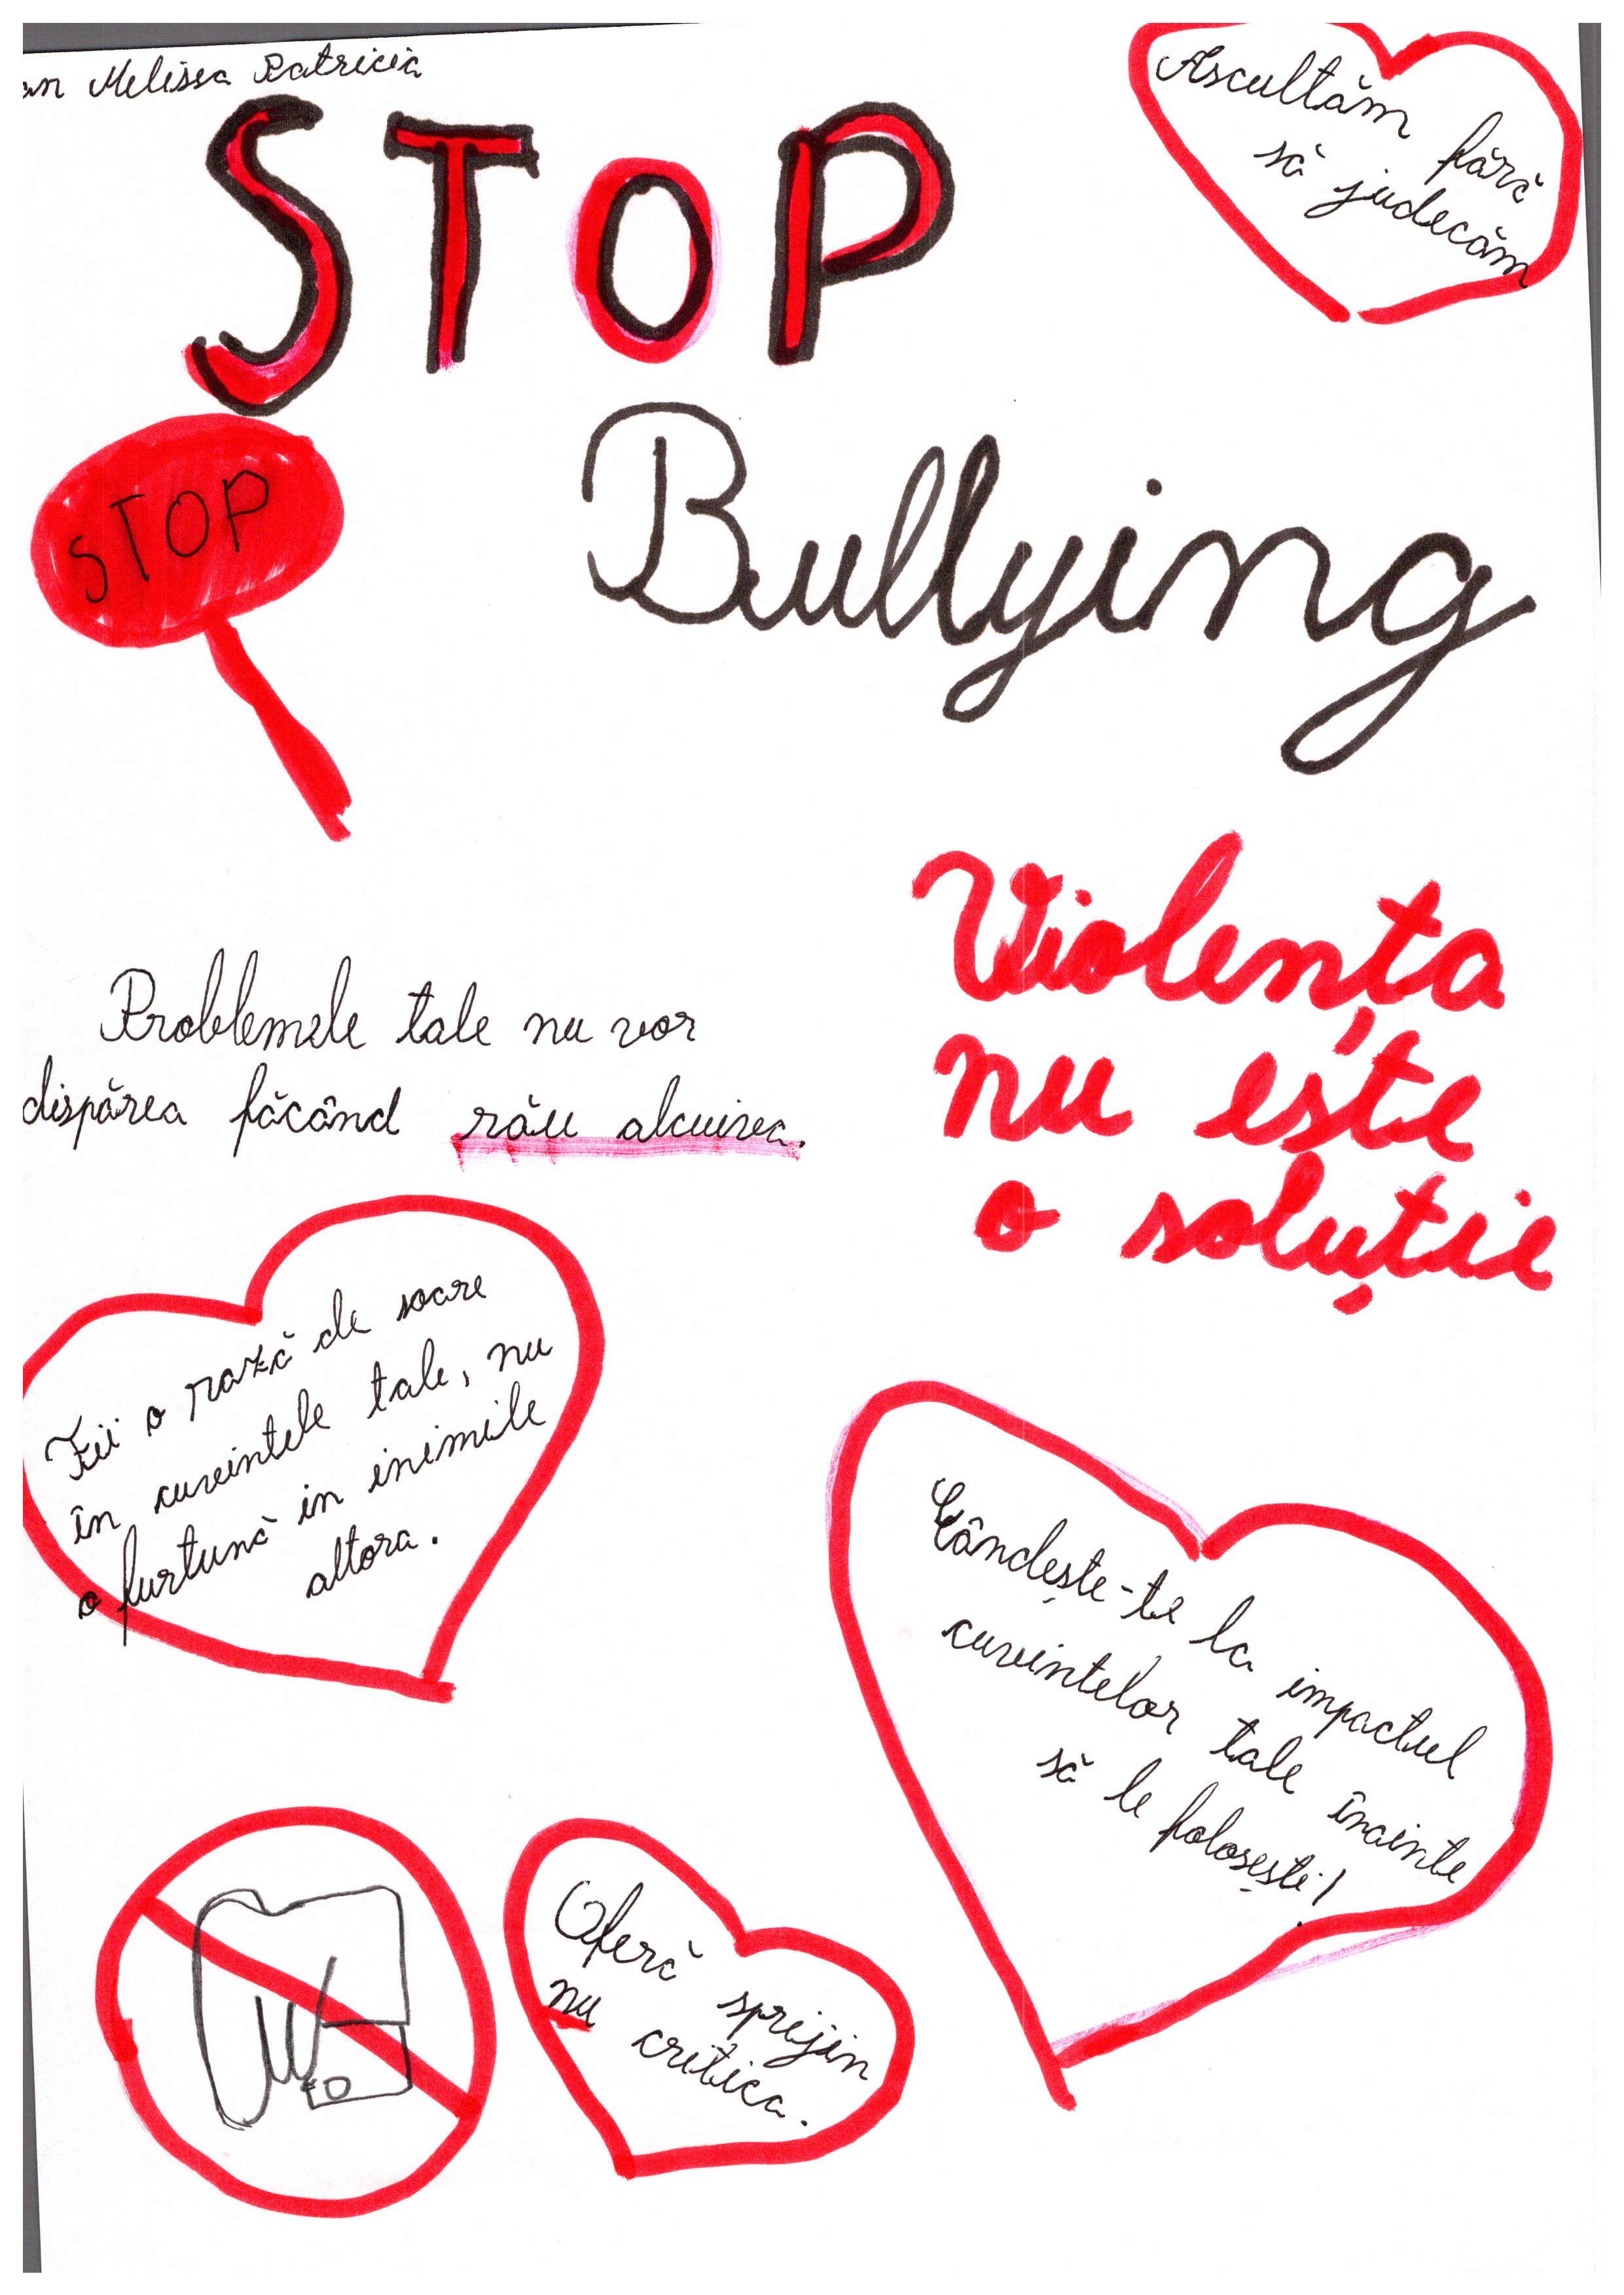 an Melissa Patricia
Ascultăm fără
să judecăm
STOP
Bullying
STOP
Violența
nu este
o soluție
Problemele tale nu vor
dispărea făcând rău alcuiva.
Fii o rază de soare
în cuvintele tale, nu
o furtună in inimile
altora.
Gândește-te la impactul
cuvintelor tale înainte
să le folosești!
Oferă sprijin
nu critica.